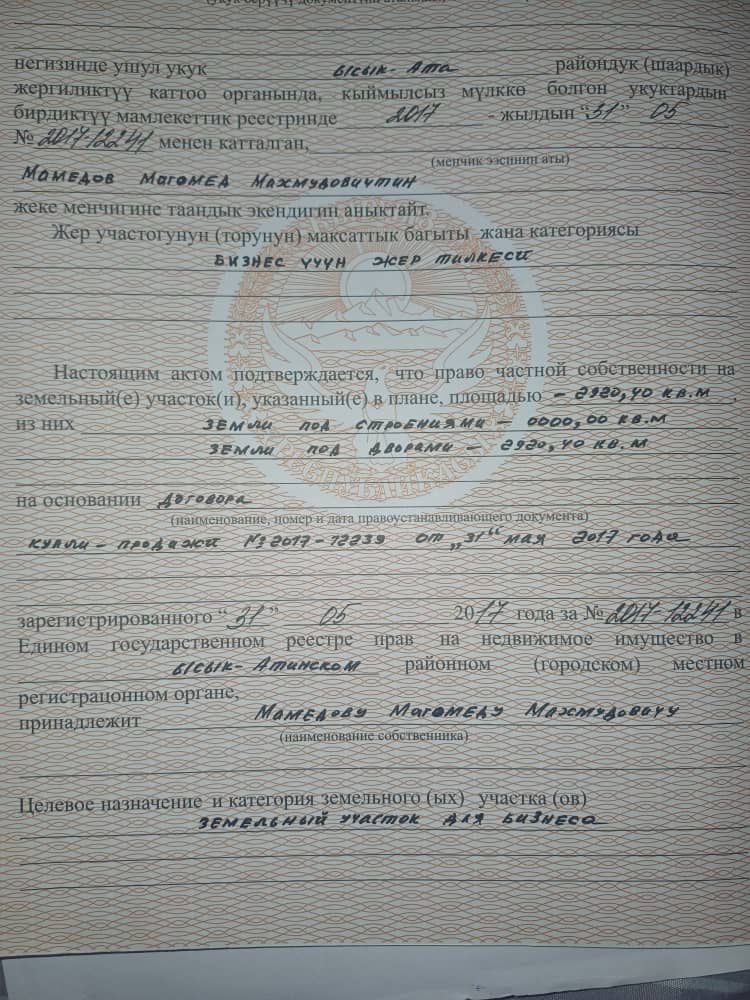 (укук берүүчү документтин аталышы,
негизинде ушул укук Ысык-Ата райондук (шаардык)
жергиликтүү каттоо органында, кыймылсыз мүлккө болгон укуктардын
бирдиктүү мамлекеттик реестринде 2017 - жылдын “31” 05
№ 2017-12241 менен катталган,
(менчик ээсинин аты)
Мамедов Магомед Махмудовичтин
жеке менчигине таандык экендигин аныктайт.
Жер участогунун (торунун) максаттык багыты жана категориясы
бизнес үчүн жер тилкеси
Настоящим актом подтверждается, что право частной собственности на
земельный(е) участок(и), указанный(е) в плане, площадью – 2920,40 кв.м ,
из них земли под строениями – 0000,00 кв.м
земли под дворами – 2920,40 кв.м
на основании договора
(наименование, номер и дата правоустанавливающего документа)
купли – продажи №2017-12239 от „31“ мая 2017 года
зарегистрированного “31” 05 2017 года за № 2017-12241 в
Едином государственном реестре прав на недвижимое имущество в
Ысык-Атинском районном (городском) местном
регистрацонном органе,
принадлежит Мамедову Магомеду Махмудовичу
(наименование собственника)
Целевое назначение и категория земельного (ых) участка (ов)
земельный участок для бизнеса